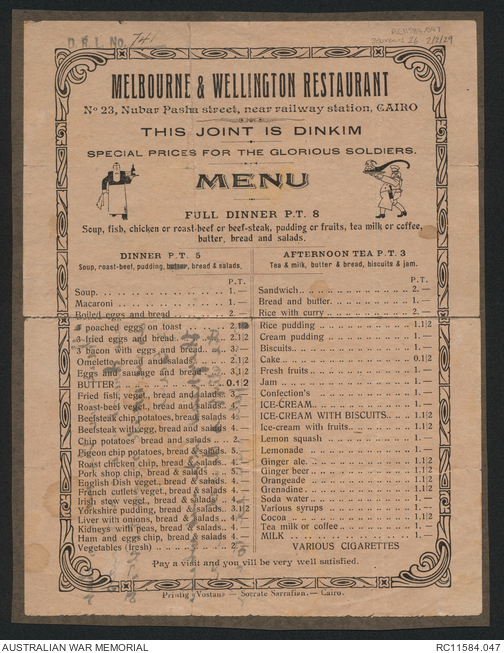 D. R. I. No. 741
RC11584.047
2/2/29
MELBOURNE & WELLINGTON RESTAURANT
No 23, Nubar Pasha street, near railway station, CAIRO
THIS JOINT IS DINKIM
SPECIAL PRICES FOR THE GLORIOUS SOLDIERS.
MENU
FULL DINNER P.T. 8
Soup, fish, chicken or roast-beef or beef-steak, pudding or fruits, tea milk or coffee,
butter, bread and salads.
DINNER P.T. 5
Soup, roast-beef, pudding, butter, bread & salads.
P.T.
Soup 1.—
Macaroni 1.—
Boiled eggs and bread 2.—
poached eggs on toast 2.1|2
3 fried eggs and bread 2.1|2
3 bacon with eggs and bread 3.—
Omelette bread and salads 2.1|2
Eggs and sausage and bread 3.1|2
BUTTER 0.1|2
Fried fish, veget., bread and salads 3.
Roast-beef veget., bread and salads 4.
Beefsteak chip potatoes, bread and salads 4.
Beefsteak with egg, bread and salads 4.
Chip potatoes bread and salads 2.
Pigeon chip potatoes, bread & salads 5.
Roast chicken chip, bread & salads 5.
Pork shop chip, bread & salads 4.
English Dish veget., bread & salads 4.
French cutlets veget., bread & salads 4.
Irish stew veget., bread & salads 4.
Yorkshire pudding, bread & salads 3.1|2
Liver with onions, bread & salads 4.
Kidneys with peas, bread & salads 4.
Ham and eggs chip, bread & salads 4.
Vegetables (fresh) 2.
AFTERNOON TEA P.T. 3
Tea & milk, butter & bread, biscuits & jam.
P.T.
Sandwich 2.—
Bread and butter 1.—
Rice with curry 2.—
Rice pudding 1.1|2
Cream pudding 1.—
Biscuits 1.—
Cake 0.1|2
Fresh fruits 1.—
Jam 1.—
Confection's 1.—
ICE-CREAM 1.—
ICE-CREAM WITH BISCUITS 1.1|2
Ice-cream with fruits 1.1|2
Lemon squash 1.—
Lemonade 1.—
Ginger ale 1.1|2
Ginger beer 1.1|2
Orangeade 1.1|2
Grenadine 1.1|2
Soda water 1.—
Various syrups 1.—
Cocoa 1.1|2
Tea milk or coffee 1.—
MILK 1.—
VARIOUS CIGARETTES
Pay a visit and you vill be very well satisfied.
Printig "Vostan" — Socrate Sarrafian. — Cairo.
AUSTRALIAN WAR MEMORIAL
RC11584.047